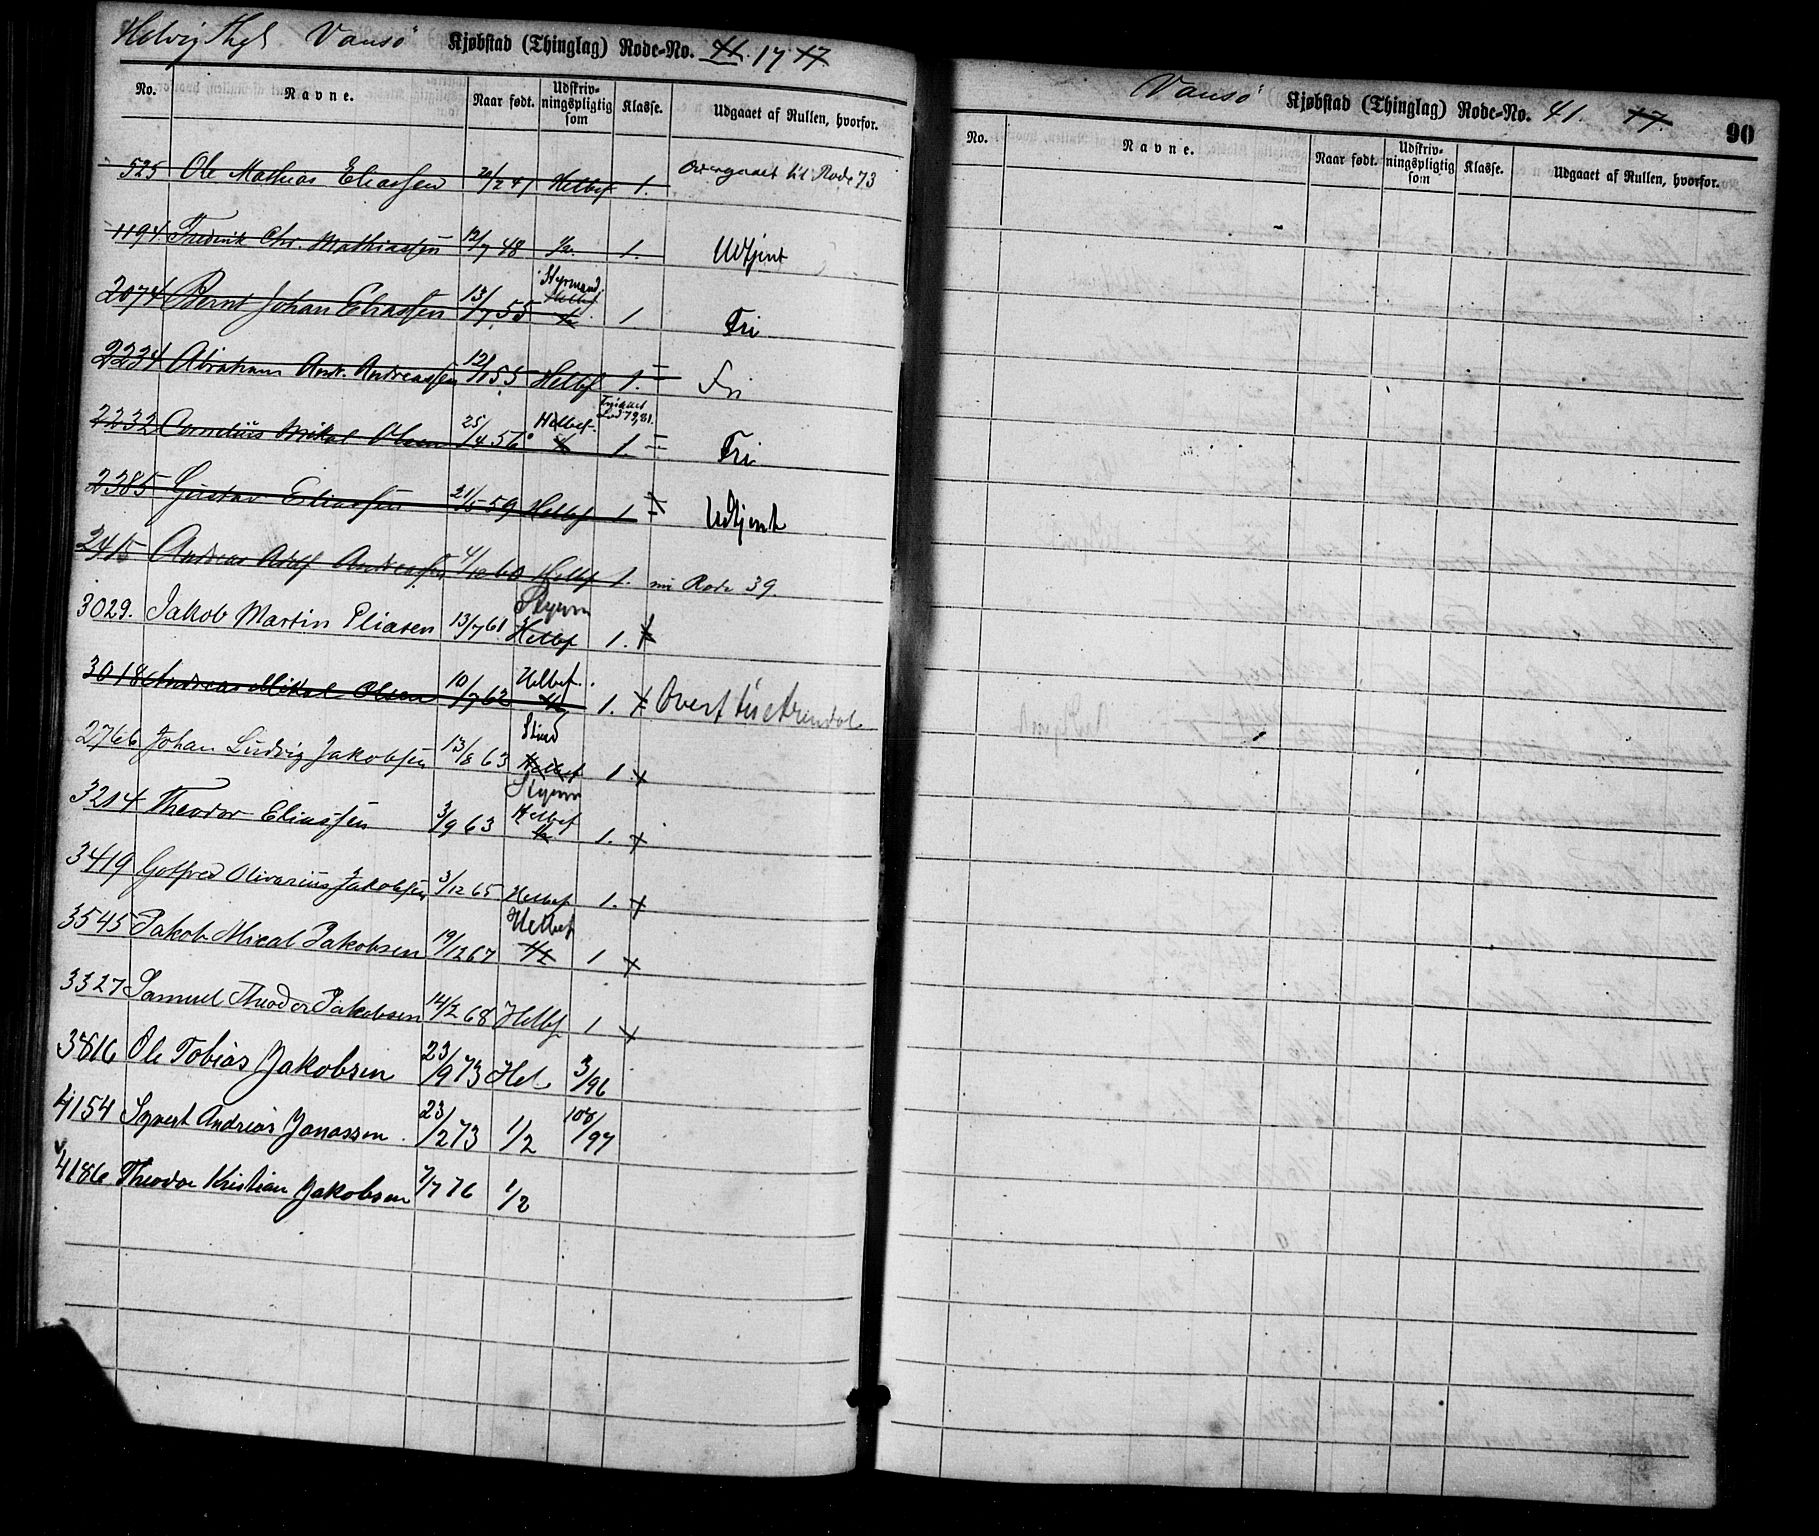 Helvig Thgl Vansø Kjøbstad (Thinglag) Rode-No. 41. 17 17.
No. Navne. Naar født. Udskriv-ningspligtig som Klasse. Udgaaet af Rullen, hvorfor.
525 Ole Mathias Eliassen 21/2 47 Helbef 1. overgaaet til Rode 73
1194 Fredrik Chr. Mathiassen 12/7 48 1/2. 1. Udtjent
2074 Bernt Johan Eliassen 13/7 55 Styrmand Helbef 1/2 1. Fri
2234 Abraham Andr. Andreassen 12/1 55 Helbf 1. Fri
2232 Cornelius Mikal Olsen 25/4 56 Helbef. 1/2 1 Fri
2385 Gustav Eliassen 21/5 59 Helbef 1. Udtjent
2415 Andreas Adolf Andreassen 4/12 60 Helbf 1. ni Rode 39
3029. Jakob Martin Eliasen 13/7 61 Styrm Helbf 1. +
3018 Andreas Mikal Olsen 10/7 62 Helbef. 1/2 1. + Overf til Arendal
2766 Johan Ludvig Jakobsen 13/8 63 Helbef 1 +
3214 Theodor Eliassen 3/9 63 Styrm Helbef 1/2 1. +
3419 Gotfred Olivarius Jakobsen 3/12 65 Helbef 1. +
3545 Jakob Mical Jakobsen 19/12 67 Helbef 1/2 1 +
3327 Samuel Theodor Jakobsen 14/2 68 Helbf 1 +
3816 Ole Tobias Jakobsen 23/9 73 Hel 3/96
4154 Syvert Andreas Jonassen. 23/2 73 1/2 108/97
4186 Theodor Kristian Jakobsen 7/7 76 1/2
Vansø Kjøbstad (Thinglag) Rode-No. 41. 17. 90
No. Navne. Naar født. Udskriv-ningspligtig som Klasse. Udgaaet af Rullen, hvorfor.